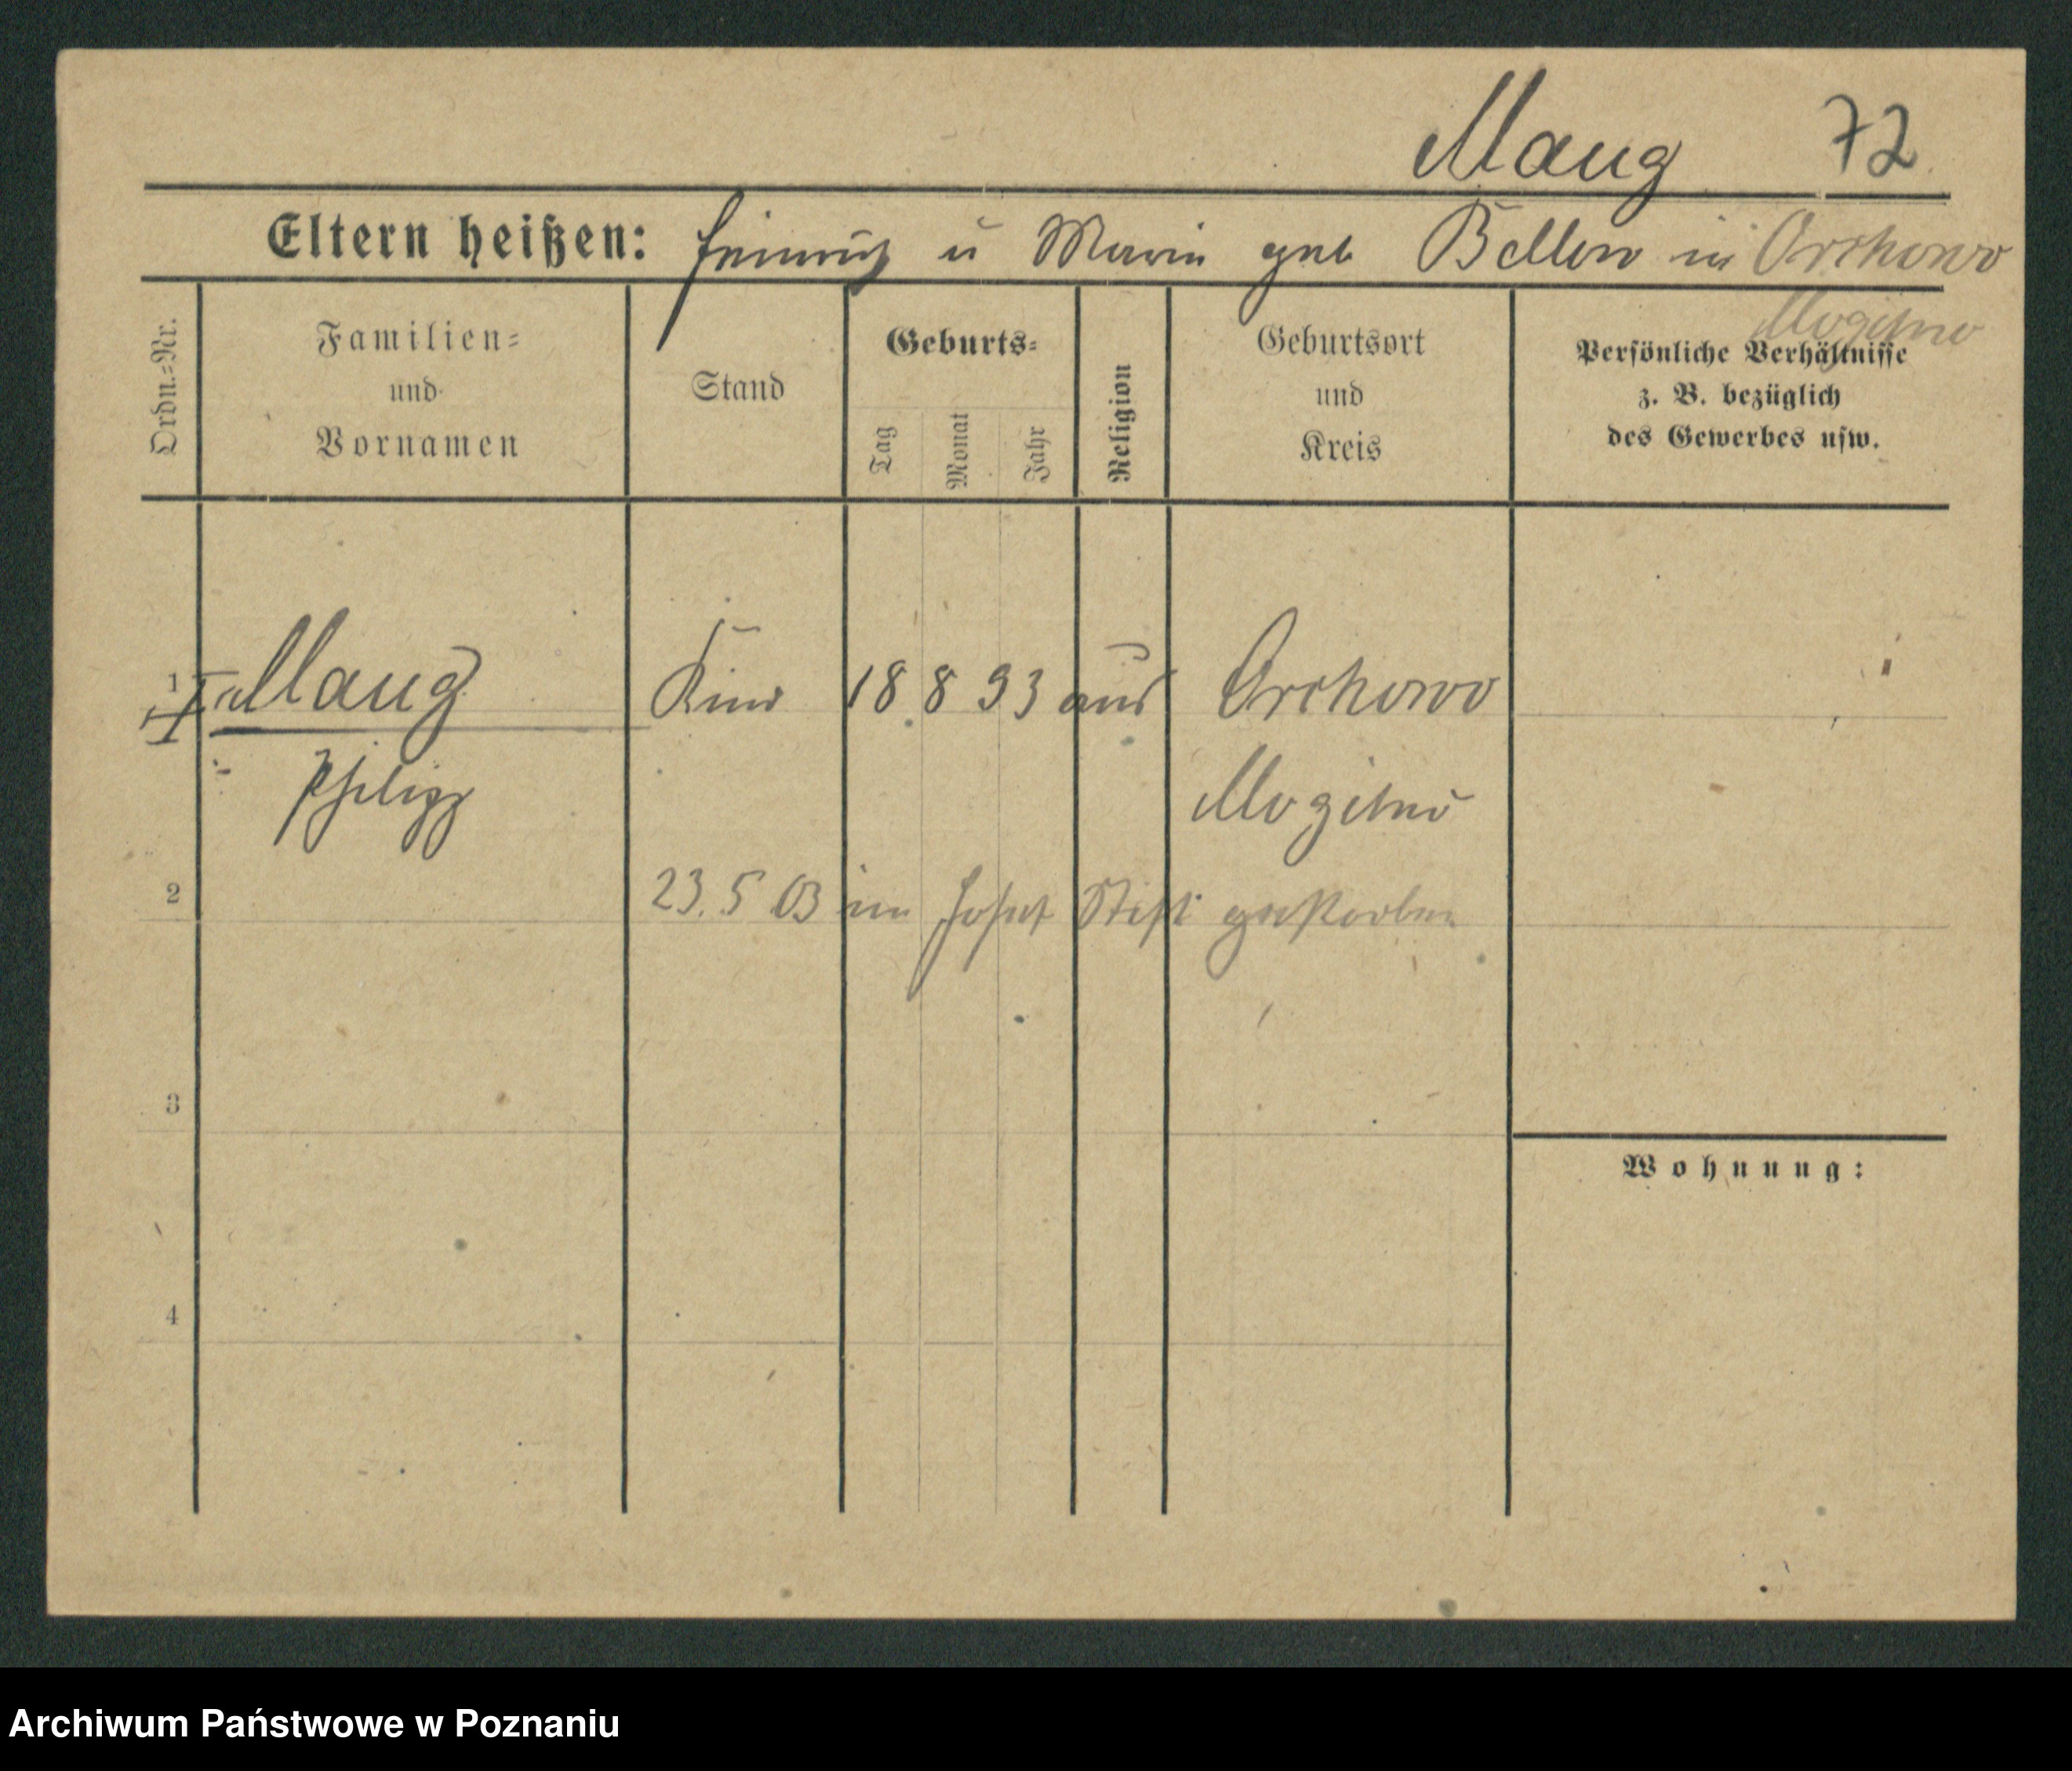 Maug 72
Eltern heißen: Heinrich u Marie geb Bellow in Orchowo
Mogilno
Ordn.-Nr.
Familien-
und
Vornamen
Stand
Geburts-
Tag
Monat
Jahr
Religion
Geburtsort
und
Kreis
Persönliche Verhältnisse
z. B. bezüglich
des Gewerbes usw.
1 Maug Kind 18 8 93 aus Orchowo
Philipp Mogilno
2 23. 5 03 im Josef Stift gestorben
3
Wohnung:
4
Archiwum Państwowe w Poznaniu